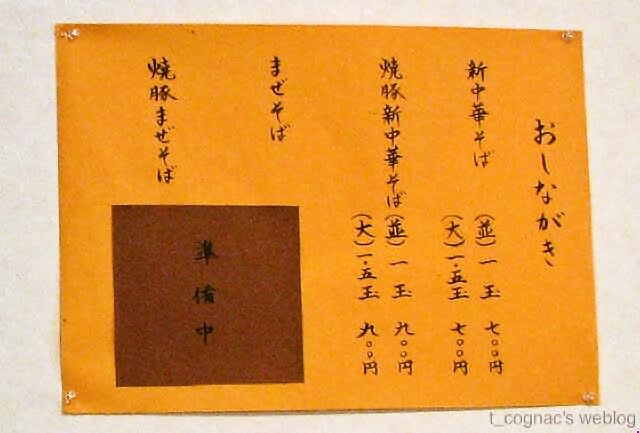 おしながき
新中華そば
(並)一玉 七〇〇円
(大)一・五玉 七〇〇円
焼豚新中華そば
(並)一玉 九〇〇円
(大)一・五玉 九〇〇円
まぜそば
焼豚まぜそば
準備中
t_cognac's weblog